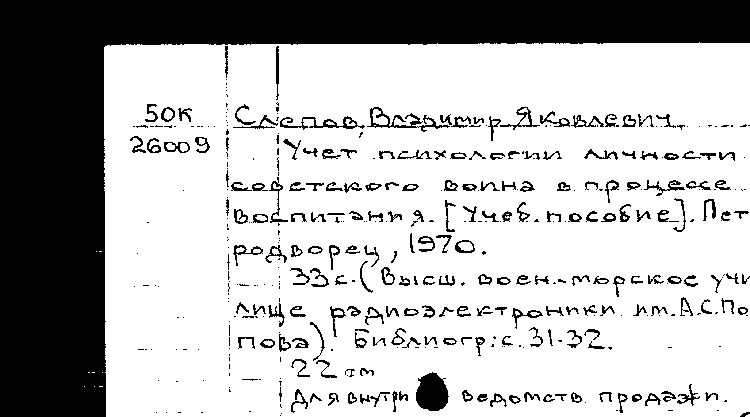 50К Слепов, Владимир Яковлевич.
26009 Учет психологии личности
советского воина в процессе
воспитания. [Учеб. пособие]. Пет
родворец, 1970.
33с. (Высш. воен.-морское учи
лище радиоэлектроники им. А.С. По
пова). Библиогр.: с. 31-32.
22 см
Для внутри ведомств. продажи.